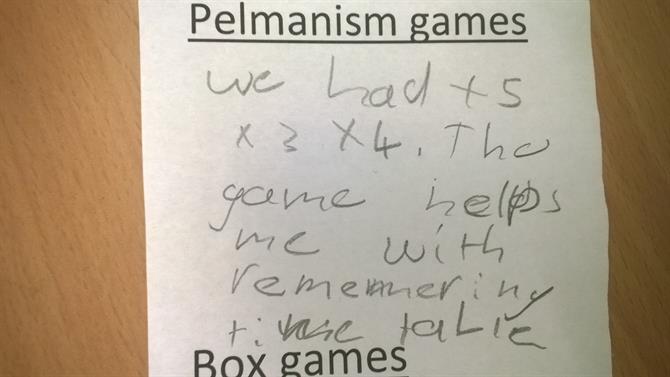 Pelmanism games
we had x5
x 3 x4. The
game helps
me with
rememering
time table
Box games